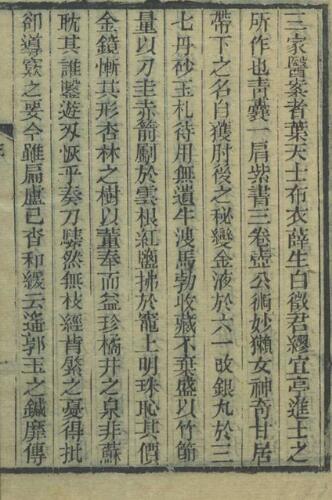 三家醫案者葉天士布衣薛生白徵君繆宜亭進士之
所作也青囊一肩紫書三卷壺公術妙獺女神奇甘居
帶下之名自獲肘後之秘變金液於六一故銀丸於三
七丹砂玉札待用無遺牛溲馬勃收藏不棄盛以竹筩
量以刀圭赤箭劚於雲根紅鹽拂於竈上明珠恥其價
金鏡慚其形杏林之樹以董奉而益珍橘井之泉非蘇
耽其誰鑿遊刃恢乎奏刀騞然無枝經肯綮之憂得批
郤導窾之要今雖扁盧已杳和緩云遙郭玉之鍼靡傳